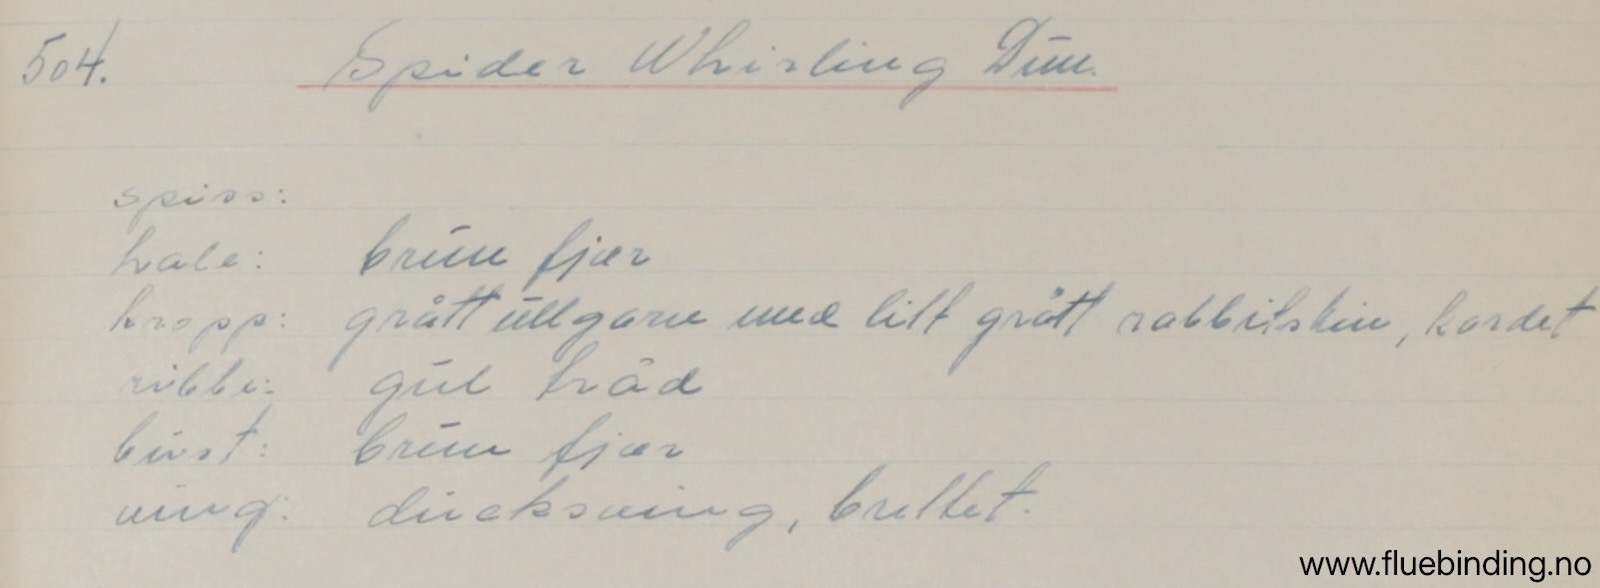 504. Spider Whirling Dun.
spiss:
hale: brun fjær
kropp: grått ullgarn med litt grått rabbitskin, kardet
ribbe: gul tråd
bust: brun fjær
ving: ducksving, brettet.
www.fluebinding.no